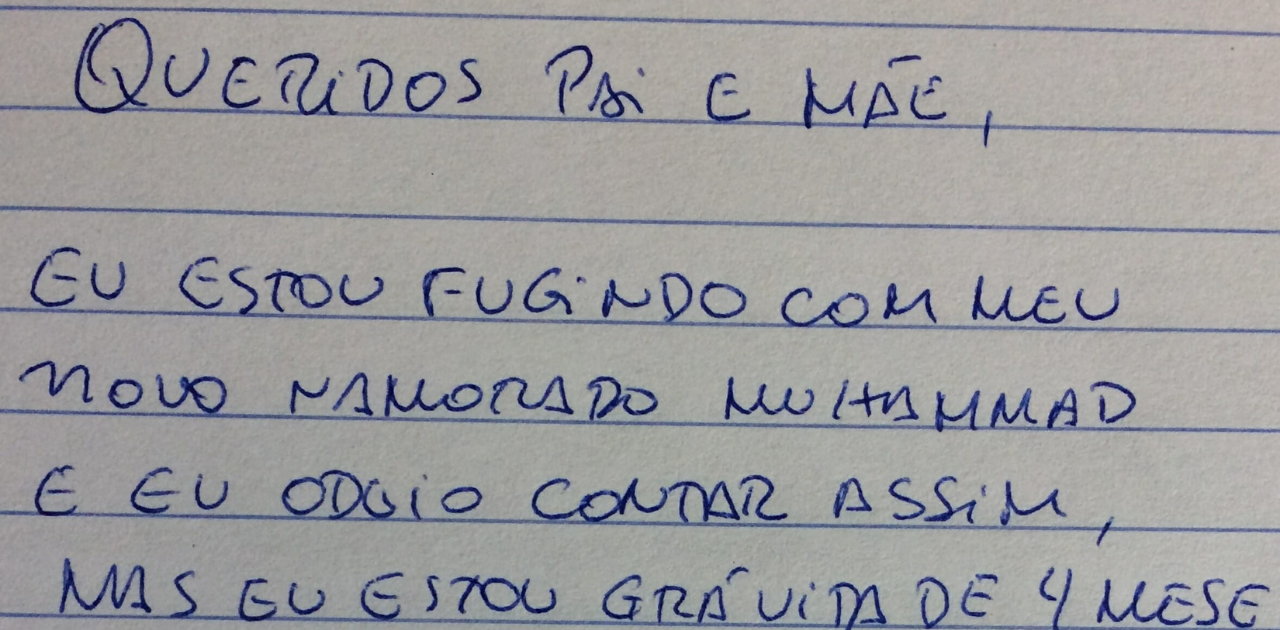 QUERIDOS PAI E MÃE,
EU ESTOU FUGINDO COM MEU
NOVO NAMORADO MUHAMMAD
E EU ODEIO CONTAR ASSIM,
MAS EU ESTOU GRÁVIDA DE 4 MESE